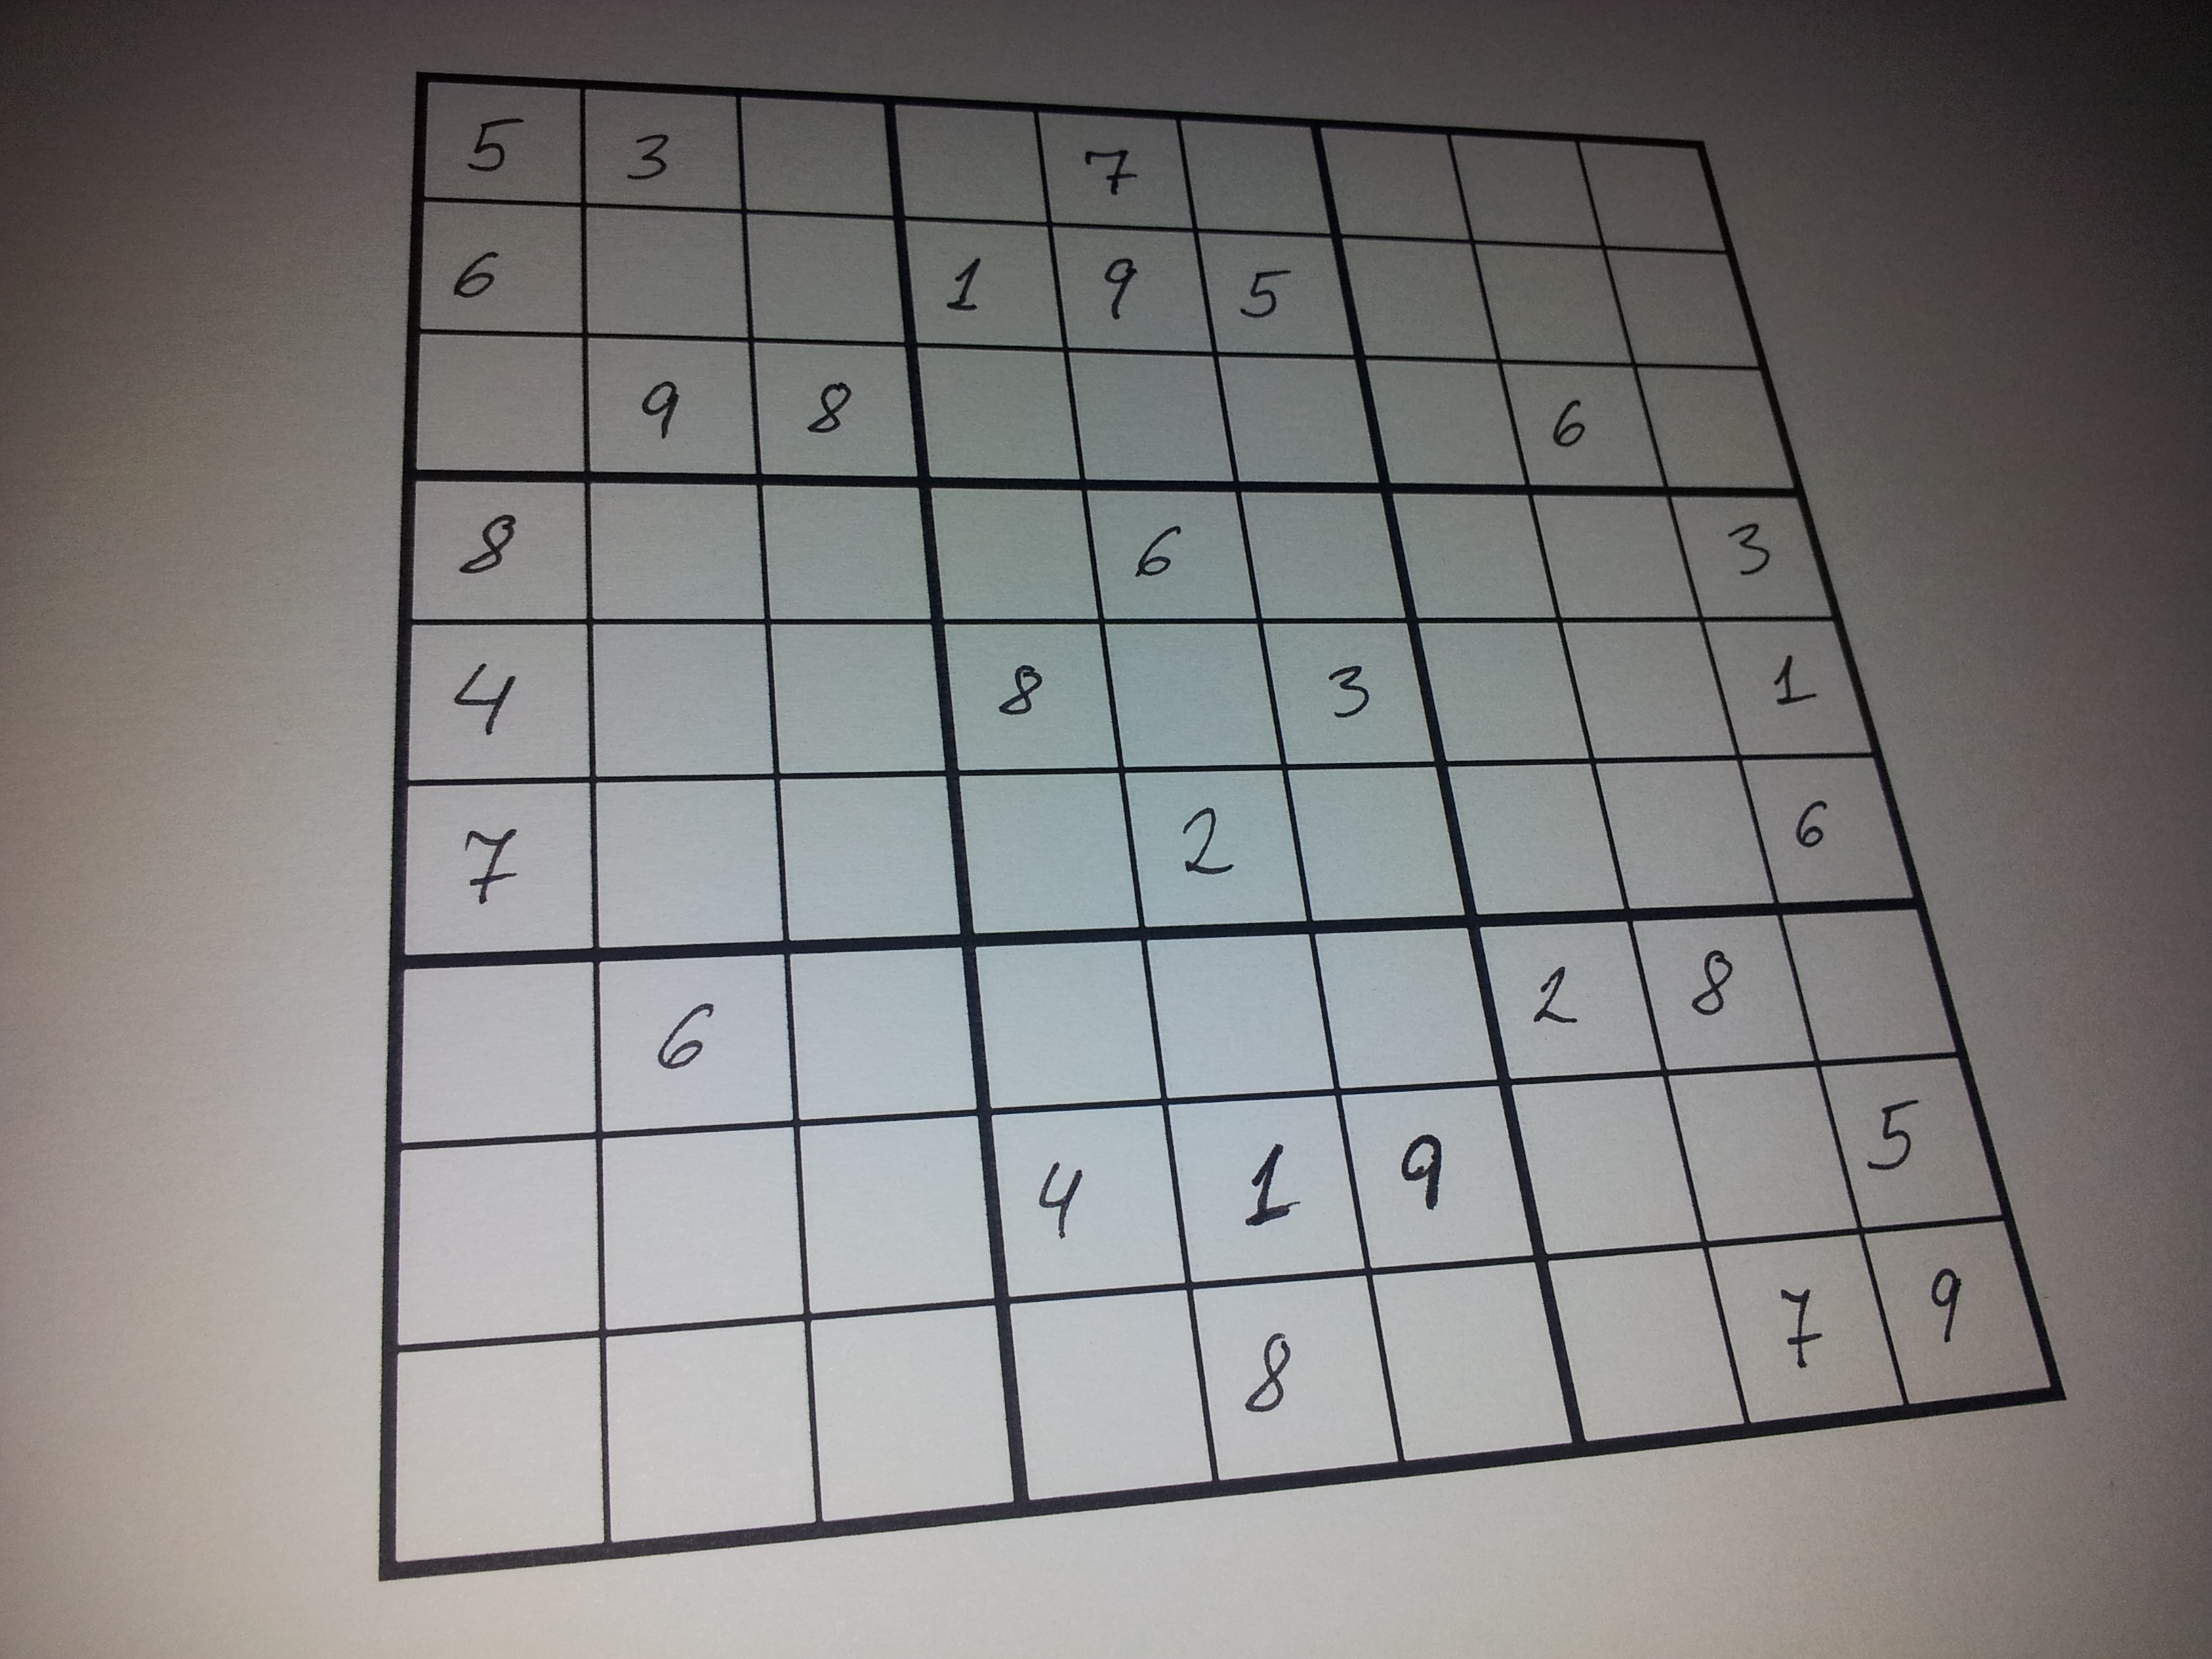 5 3 7
6 1 9 5
9 8 6
8 6 3
4 8 3 1
7 2 6
6 2 8
4 1 9 5
8 7 9